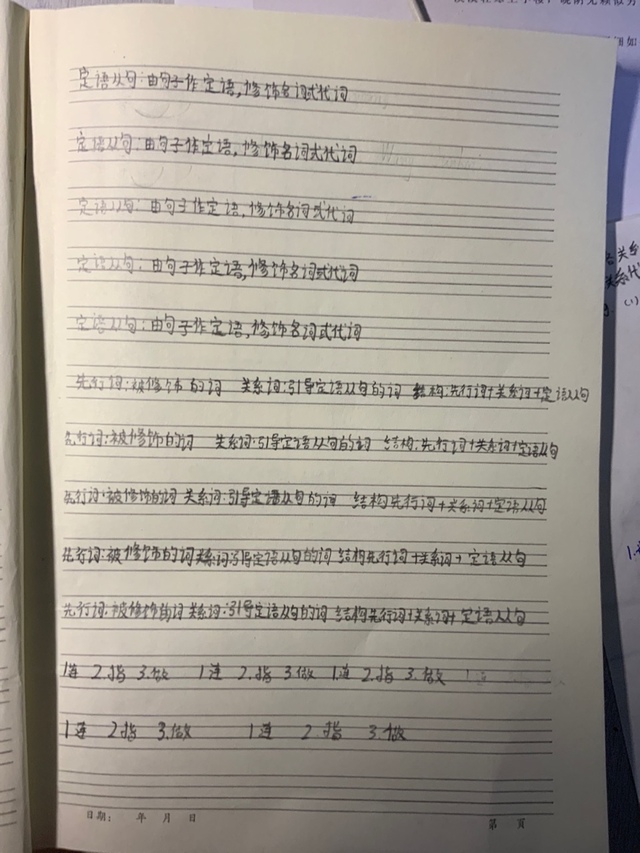 定语从句:由句子作定语,修饰名词或代词
定语从句:由句子作定语,修饰名词或代词
定语从句:由句子作定语,修饰名词或代词
定语从句:由句子作定语,修饰名词或代词
定语从句:由句子作定语,修饰名词或代词
先行词:被修饰的词 关系词:引导定语从句的词 结构:先行词+关系词+定语从句
先行词:被修饰的词 关系词:引导定语从句的词 结构:先行词+关系词+定语从句
先行词:被修饰的词 关系词:引导定语从句的词 结构先行词+关系词+定语从句
先行词:被修饰的词关系词引导定语从句的词 结构先行词+关系词+定语从句
先行词:被修饰的词 关系词:引导定语从句的词 结构先行词+关系词+定语从句
1连 2.指 3.做 1连 2.指 3.做 1.连 2.指 3.做
1连 2指 3.做 1连 2.指 3.做
日期: 年 月 日 第 页